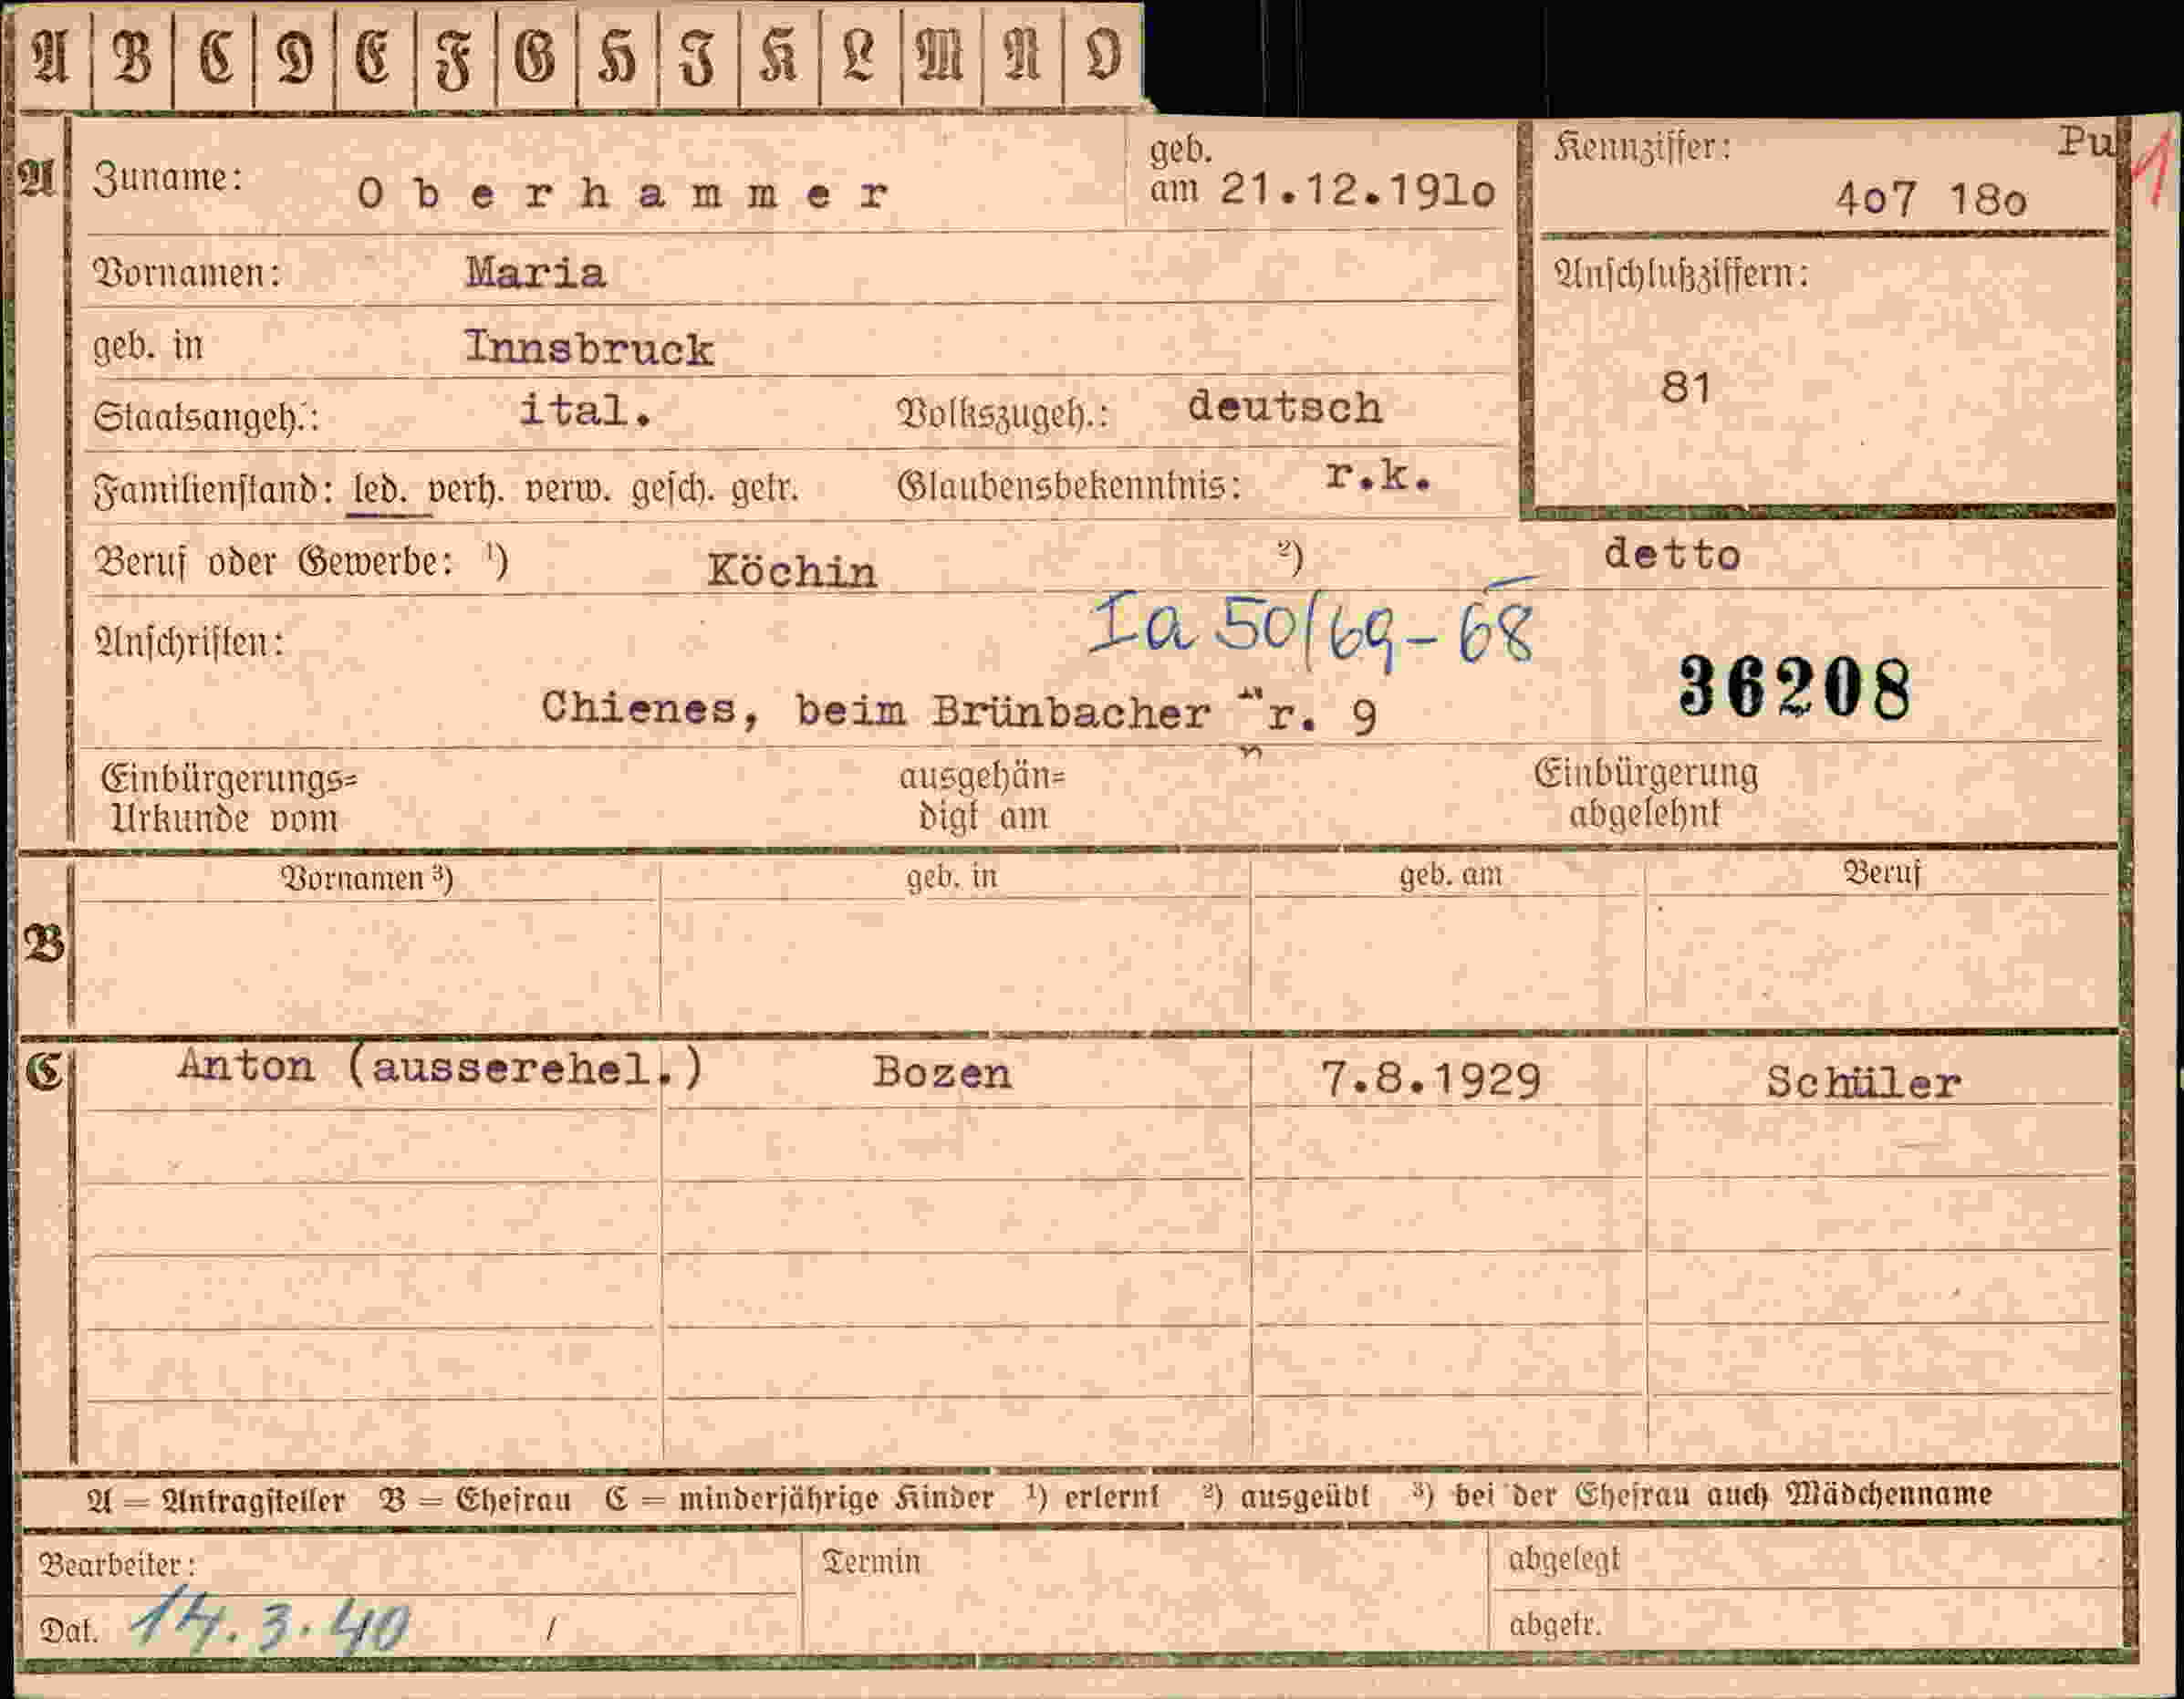 A B C D E F G H I K L M N O
A Zuname: Oberhammer geb. am 21.12.191o Kennziffer: Pu 1
4o7 18o
Vornamen: Maria Anschlußziffern:
geb. in Innsbruck
81
Staatsangeh.: ital. Volkszugeh.: deutsch
Familienstand: led. verh. verw. gesch. getr. Glaubensbekenntnis: r.k.
Beruf oder Gewerbe: ¹) Köchin ²) detto
Anschriften: Ia 50/69-68
36208
Chienes, beim Brünbacher r. 9
Einbürgerungs= ausgehän= Einbürgerung
Urkunde vom digt am abgelehnt
Vornamen ³) geb. in geb. am Beruf
B
C Anton (ausserehel.) Bozen 7.8.1929 Schüler
A = Antragsteller B = Ehefrau C = minderjährige Kinder ¹) erlernt ²) ausgeübt ³) bei der Ehefrau auch Mädchenname
Bearbeiter: Termin abgelegt
Dat. 14.3.40 / abgetr.